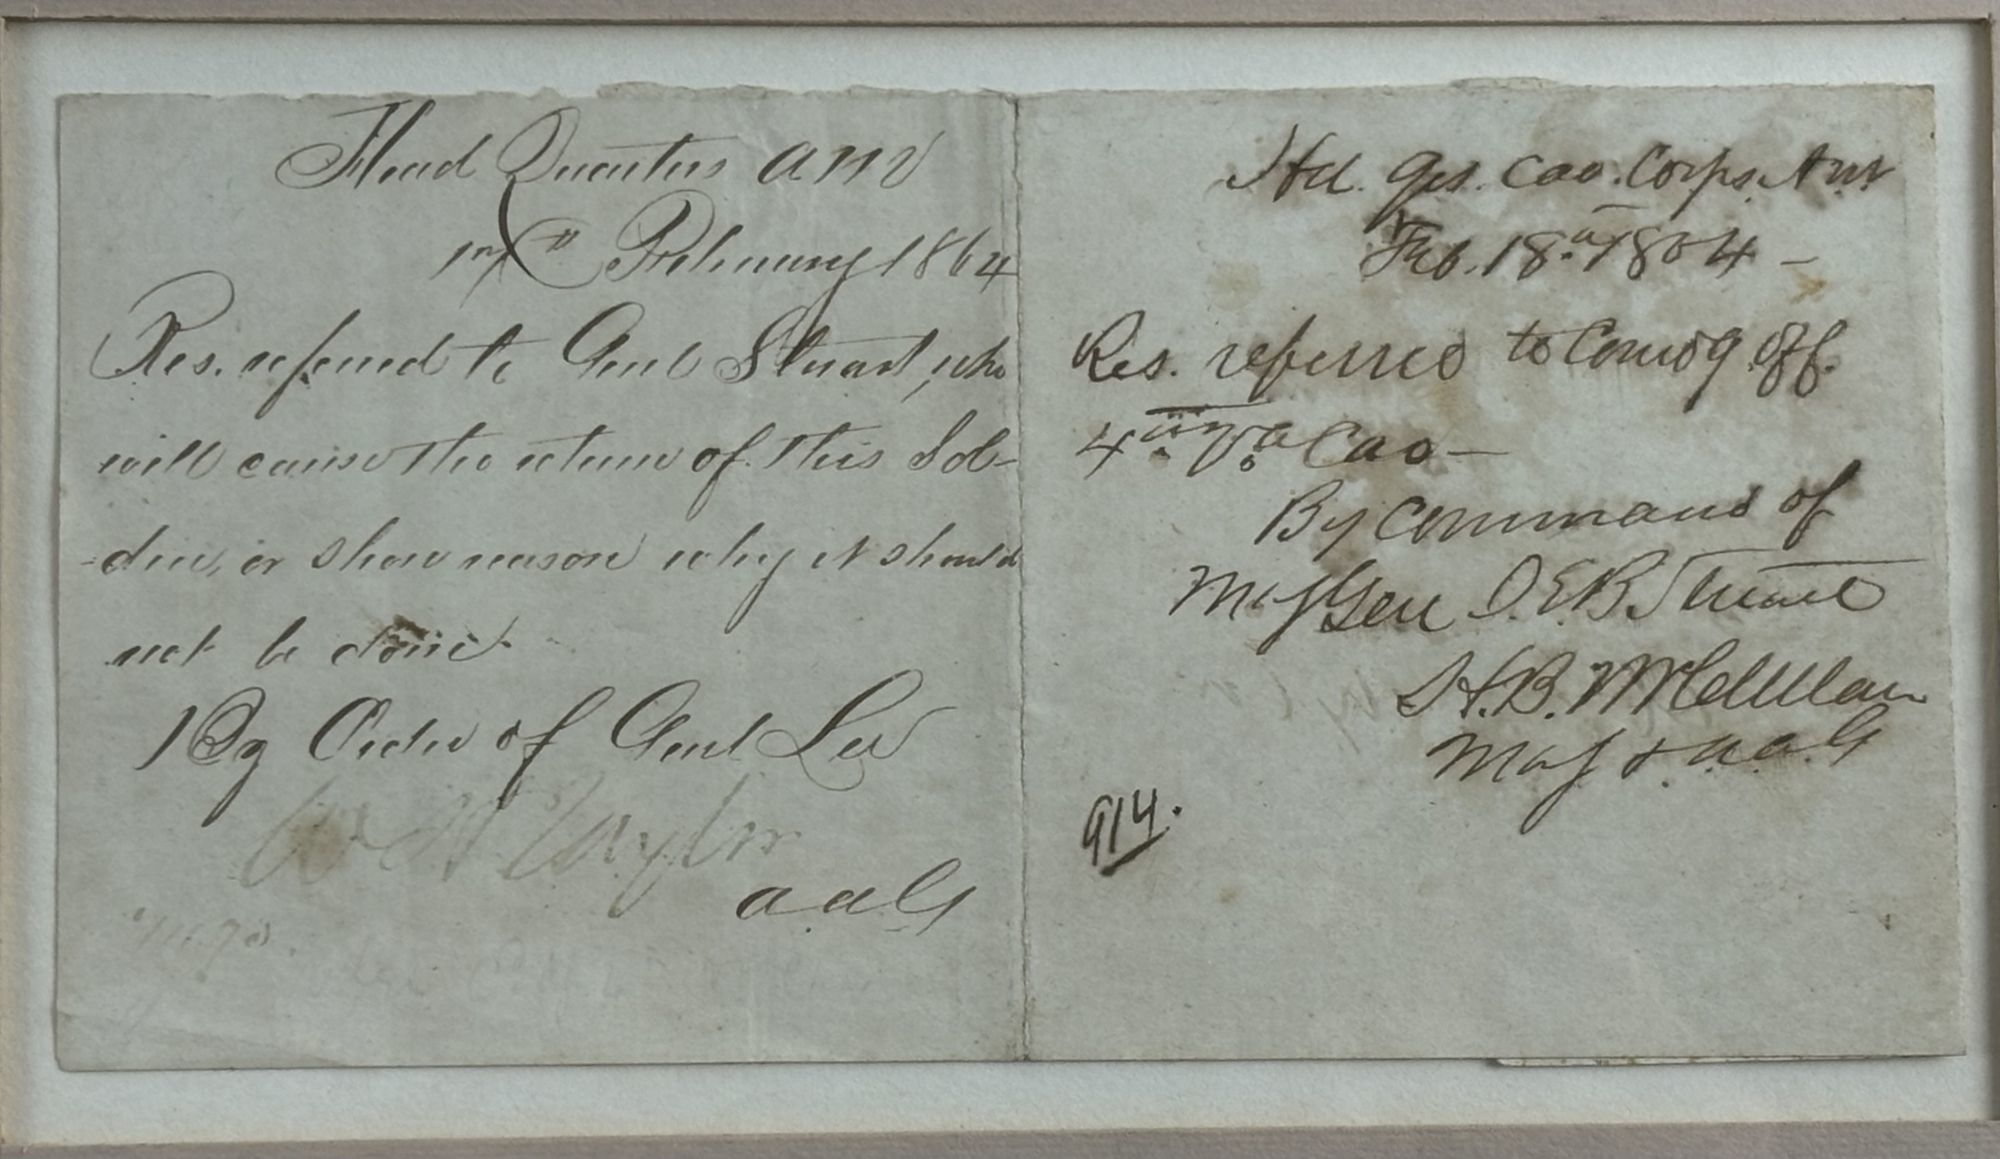 Head Quarters ANV
17th February 1864
Res. referred to Genl Stuart, who
will cause the return of this Sol-
-dier, or show reason why it should
not be done.
By Order of Genl Lee
W H Taylor
AAG
Hd. Qrs. Cav. Corps. A.N.V.
Feb. 18th 1864 -
Res. referred to Comdg Off.
4th Va Cav -
By Command of
Maj Gen J.E.B. Stuart
H.B. McClellan
Maj & A.A.G
914.